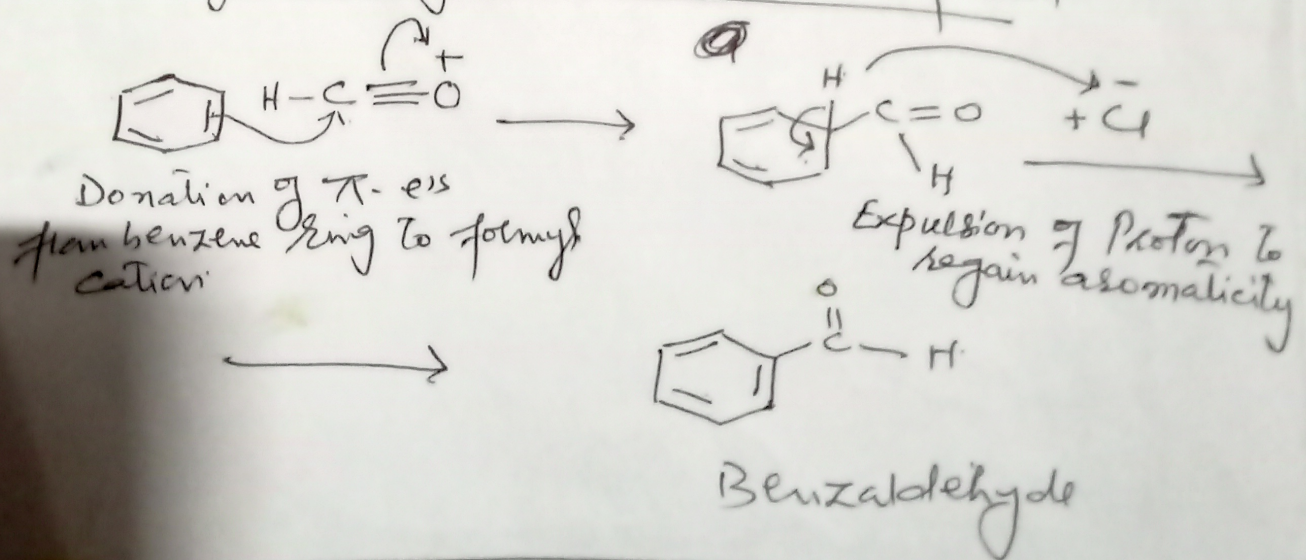 H – C ≡ O +
H
C = O
H
+ Cl –
Donation of π- e's
from benzene ring to formyl
cation
Expulsion of Proton to
regain aromaticity
O
C – H
Benzaldehyde